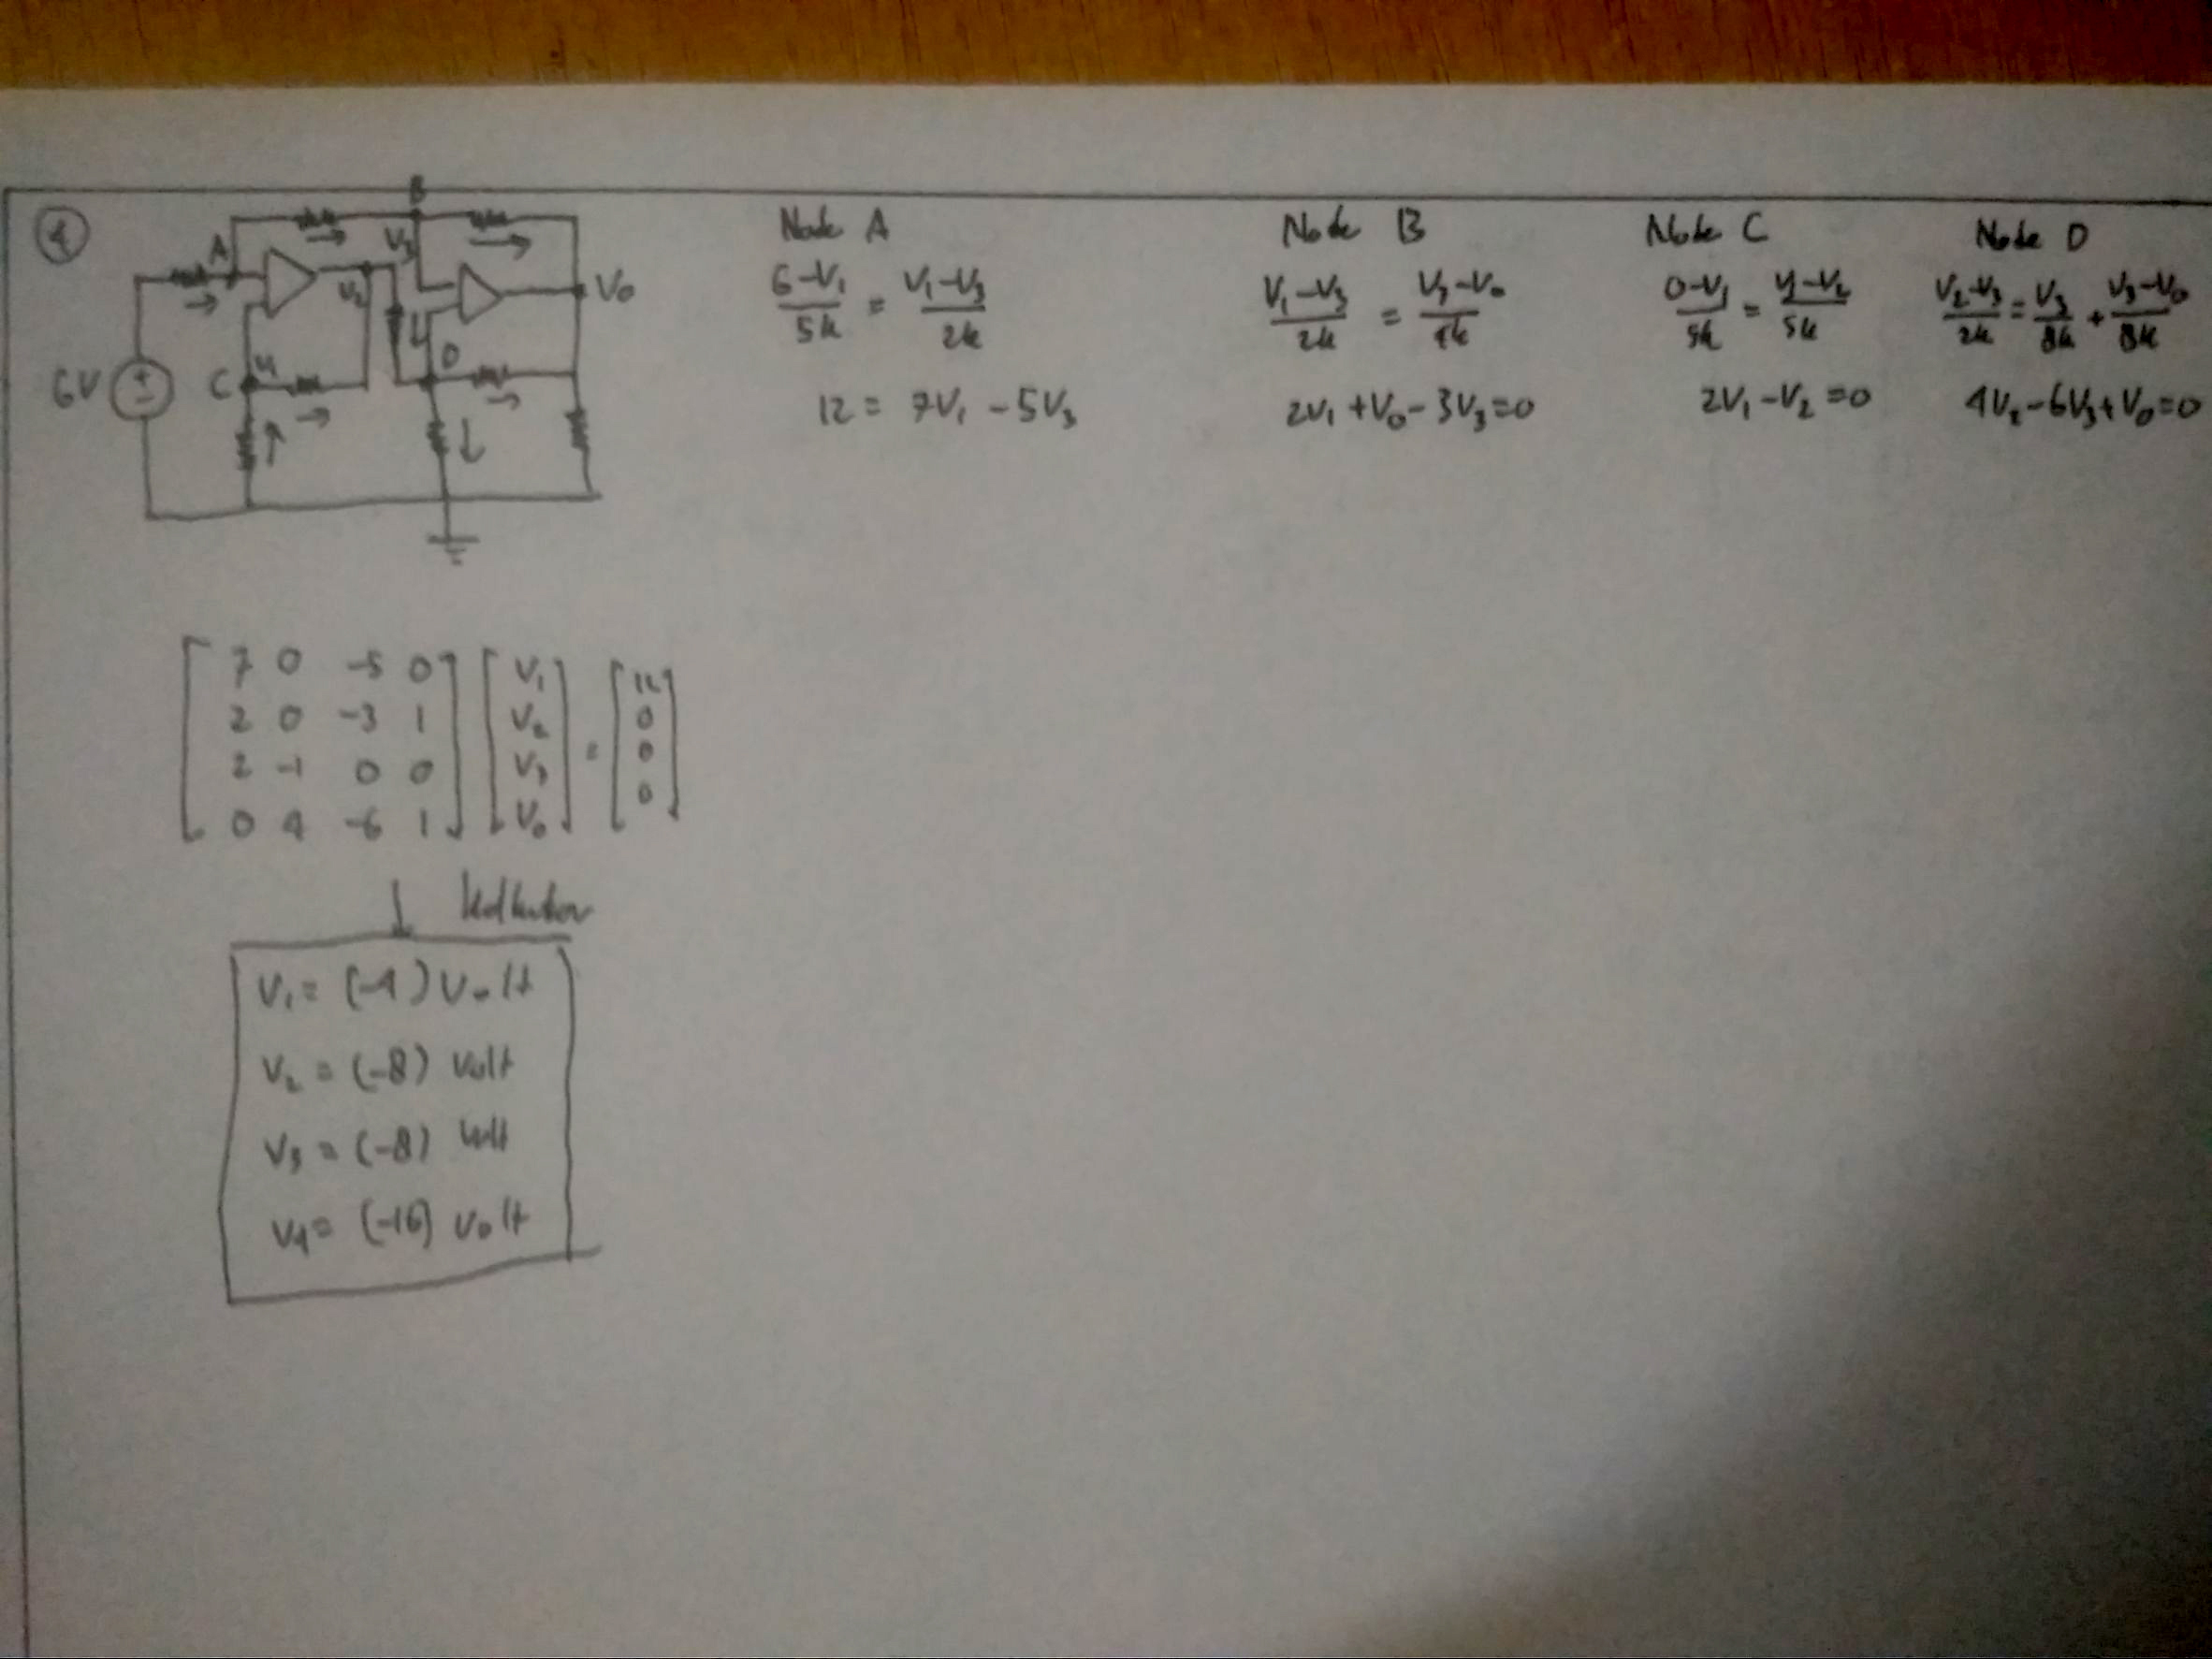 ④
B
A
V₃
V₂
V₀
6V
C
V₁
D
Node A
6-V₁/5k = V₁-V₃/2k
12 = 7V₁ - 5V₃
Node B
V₁-V₃/2k = V₃-V₀/4k
2V₁ + V₀ - 3V₃ = 0
Node C
0-V₁/5k = V₁-V₂/5k
2V₁ - V₂ = 0
Node D
V₂-V₃/2k = V₃/8k + V₃-V₀/8k
4V₂ - 6V₃ + V₀ = 0
7 0 -5 0 V₁ 12
2 0 -3 1 V₂ 0
2 -1 0 0 V₃ = 0
0 4 -6 1 V₀ 0
V₁ = (-4) Volt
V₂ = (-8) Volt
V₃ = (-8) Volt
V₄ = (-16) Volt